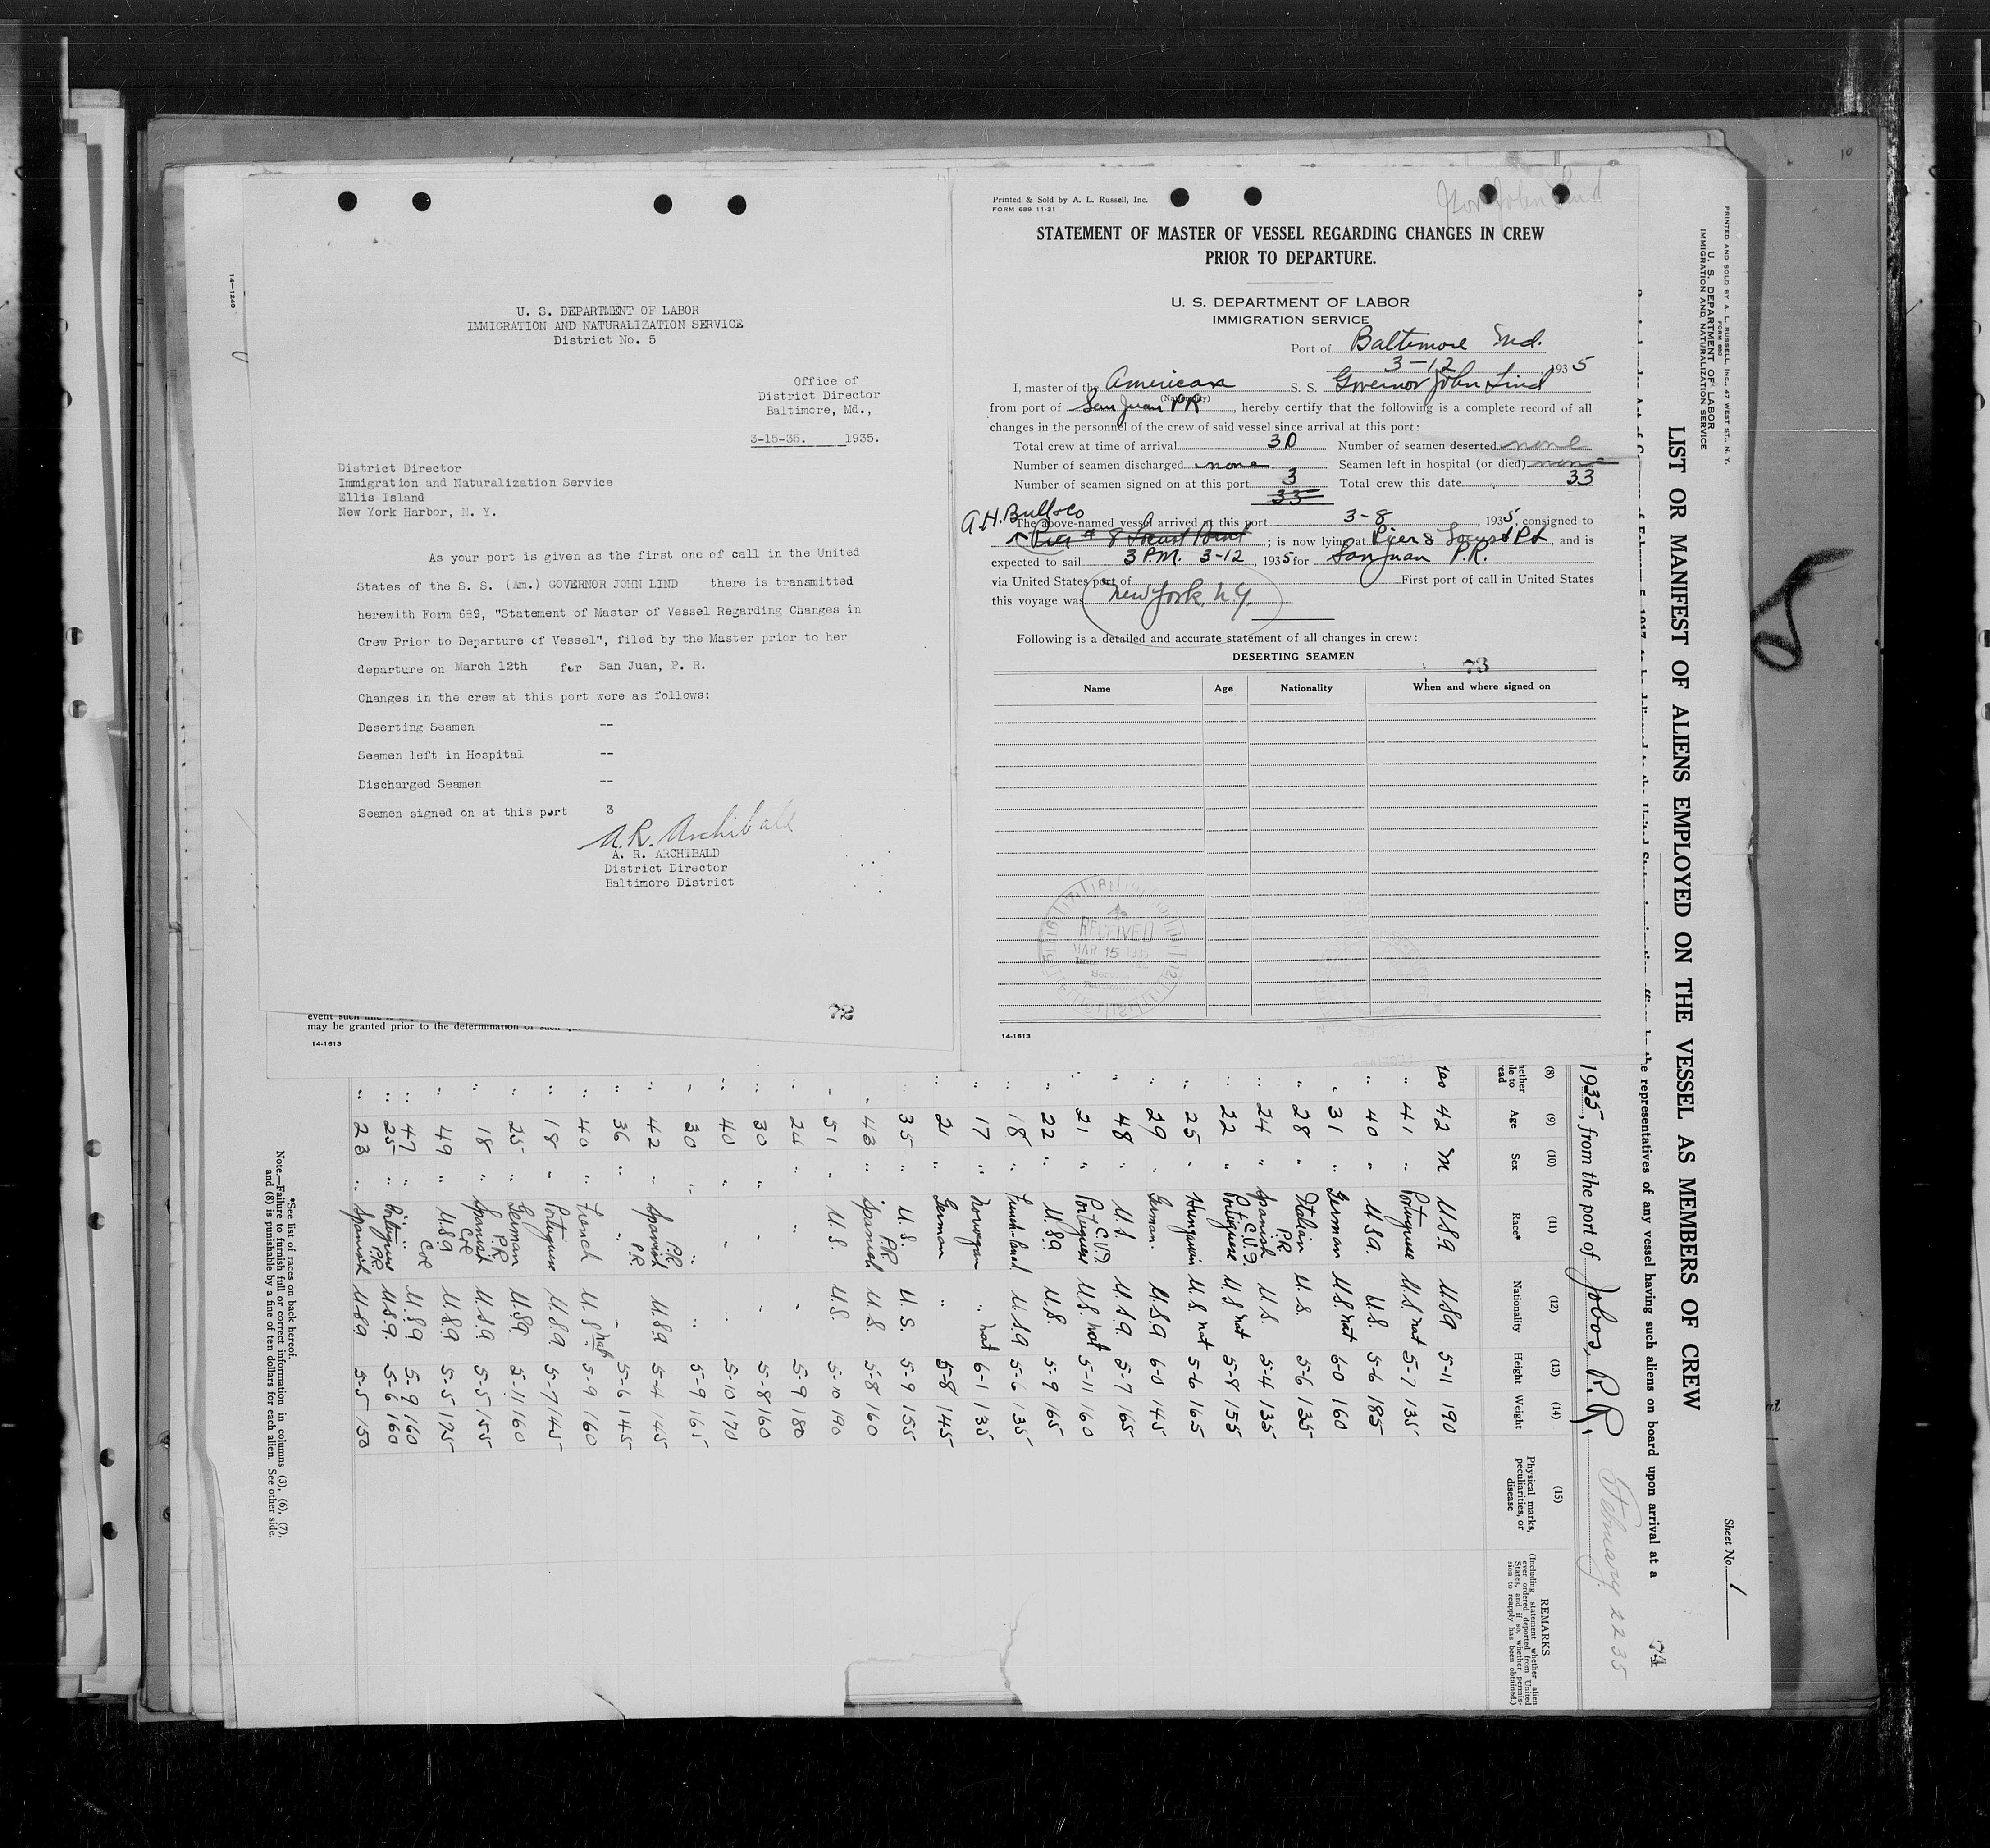 14—1240
U. S. DEPARTMENT OF LABOR
IMMIGRATION AND NATURALIZATION SERVICE
District No. 5
Office of
District Director
Baltimore, Md.,
3-15-35. 1935.
District Director
Immigration and Naturalization Service
Ellis Island
New York Harbor, N. Y.
As your port is given as the first one of call in the United
States of the S. S. (Am.) GOVERNOR JOHN LIND there is transmitted
herewith Form 689, "Statement of Master of Vessel Regarding Changes in
Crew Prior to Departure of Vessel", filed by the Master prior to her
departure on March 12th for San Juan, P. R.
Changes in the crew at this port were as follows:
Deserting Seamen --
Seamen left in Hospital --
Discharged Seamen --
Seamen signed on at this port 3
A. R. Archibald
A. R. ARCHIBALD
District Director
Baltimore District
72
event such
may be granted prior to the determination of such
14-1613
Printed & Sold by A. L. Russell, Inc.
FORM 689 11-31
Gov John Lind
STATEMENT OF MASTER OF VESSEL REGARDING CHANGES IN CREW
PRIOR TO DEPARTURE.
U. S. DEPARTMENT OF LABOR
IMMIGRATION SERVICE
Port of Baltimore Md.
3-12 1935
I, master of the American S. S. Governor John Lind
(Nationality)
from port of San Juan PR, hereby certify that the following is a complete record of all
changes in the personnel of the crew of said vessel since arrival at this port:
Total crew at time of arrival 30 Number of seamen deserted none
Number of seamen discharged none Seamen left in hospital (or died) none
Number of seamen signed on at this port 3 Total crew this date 33
33
A.H. Bull & Co
The above-named vessel arrived at this port 3-8, 1935, consigned to
Pier # 8 Locust Point; is now lying at Pier 8 Locust Pt, and is
expected to sail 3 P.M. 3-12, 1935 for San Juan P.R.
via United States port of First port of call in United States
this voyage was New York, N.Y.
Following is a detailed and accurate statement of all changes in crew:
DESERTING SEAMEN
73
Name Age Nationality When and where signed on
RECEIVED
MAR 15 1935
14-1613
PRINTED AND SOLD BY A. L. RUSSELL, INC., 47 WEST ST., N. Y.
FORM 680
U. S. DEPARTMENT OF LABOR
IMMIGRATION AND NATURALIZATION SERVICE
Sheet No. 1
LIST OR MANIFEST OF ALIENS EMPLOYED ON THE VESSEL AS MEMBERS OF CREW
74
the representatives of any vessel having such aliens on board upon arrival at a
1935, from the port of Jobos, P.R. February 22 35
(8) (9) (10) (11) (12) (13) (14) (15) REMARKS
Age Sex Race* Nationality Height Weight Physical marks, peculiarities, or disease (Including statement whether alien ever ordered deported from United States, and if so, whether permission to reapply has been obtained.)
yes 42 M U.S.A U.S.A 5-11 190
" 41 " Portuguese U.S nat 5-7 135
" 40 " U.S.A. U.S. 5-6 185
" 31 " German U.S. nat 6-0 160
" 28 " Italian U.S. 5-6 135
" 24 " Spanish P.R. U.S. 5-4 135
" 22 " Portuguese U.S nat 5-8 155
" 25 " Hungarian U.S nat 5-6 165
" 29 " German. U.S.A 6-0 145
" 48 " U.S. U.S.A. 5-7 165
" 21 " Portuguese C.V.I. U.S. nat 5-11 160
" 22 " U.S.A. U.S. 5-9 165
" 18 " U.S.A 5-6 135
" 17 " Norwegian " nat 6-1 135
" 21 " German " 5-8 145
" 35 " U.S. U.S. 5-9 155
" 43 " Spanish PR U.S. 5-8 160
" 51 " U.S. U.S. 5-10 190
" 24 " " " 5-9 180
" 30 " " " 5-8 160
" 40 " " " 5-10 170
" 30 " " " 5-9 165
" 42 " Spanish P.R. U.S.A 5-4 145
" 36 " " P.R. " 5-6 145
" 40 " French U.S. nat 5-9 160
" 18 " Portuguese U.S.A 5-7 145
" 25 " German U.S.A 5-11 160
" 18 " Spanish P.R. U.S.A 5-5 155
" 49 " U.S.A U.S.A 5-5 175
" 47 " " U.S.A 5-9 160
" 25 " Portuguese U.S.A. 5-6 160
" 23 " Spanish PR U.S.A. 5-5 150
*See list of races on back hereof.
Note.—Failure to furnish full or correct information in columns (3), (6), (7),
and (8) is punishable by a fine of ten dollars for each alien. See other side.
10